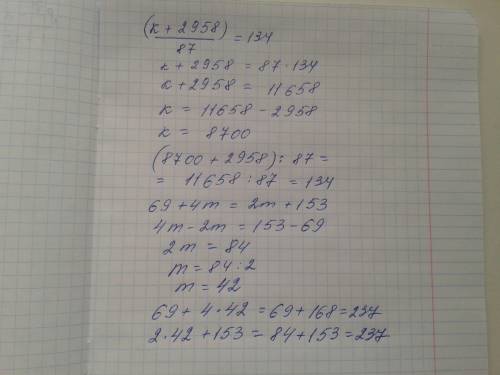 (к + 2958)/87 = 134
к + 2958 = 87 · 134
к + 2958 = 11658
к = 11658 - 2958
к = 8700
(8700 + 2958) : 87 =
= 11658 : 87 = 134
69 + 4m = 2m + 153
4m - 2m = 153 - 69
2m = 84
m = 84 : 2
m = 42
69 + 4 · 42 = 69 + 168 = 237
2 · 42 + 153 = 84 + 153 = 237